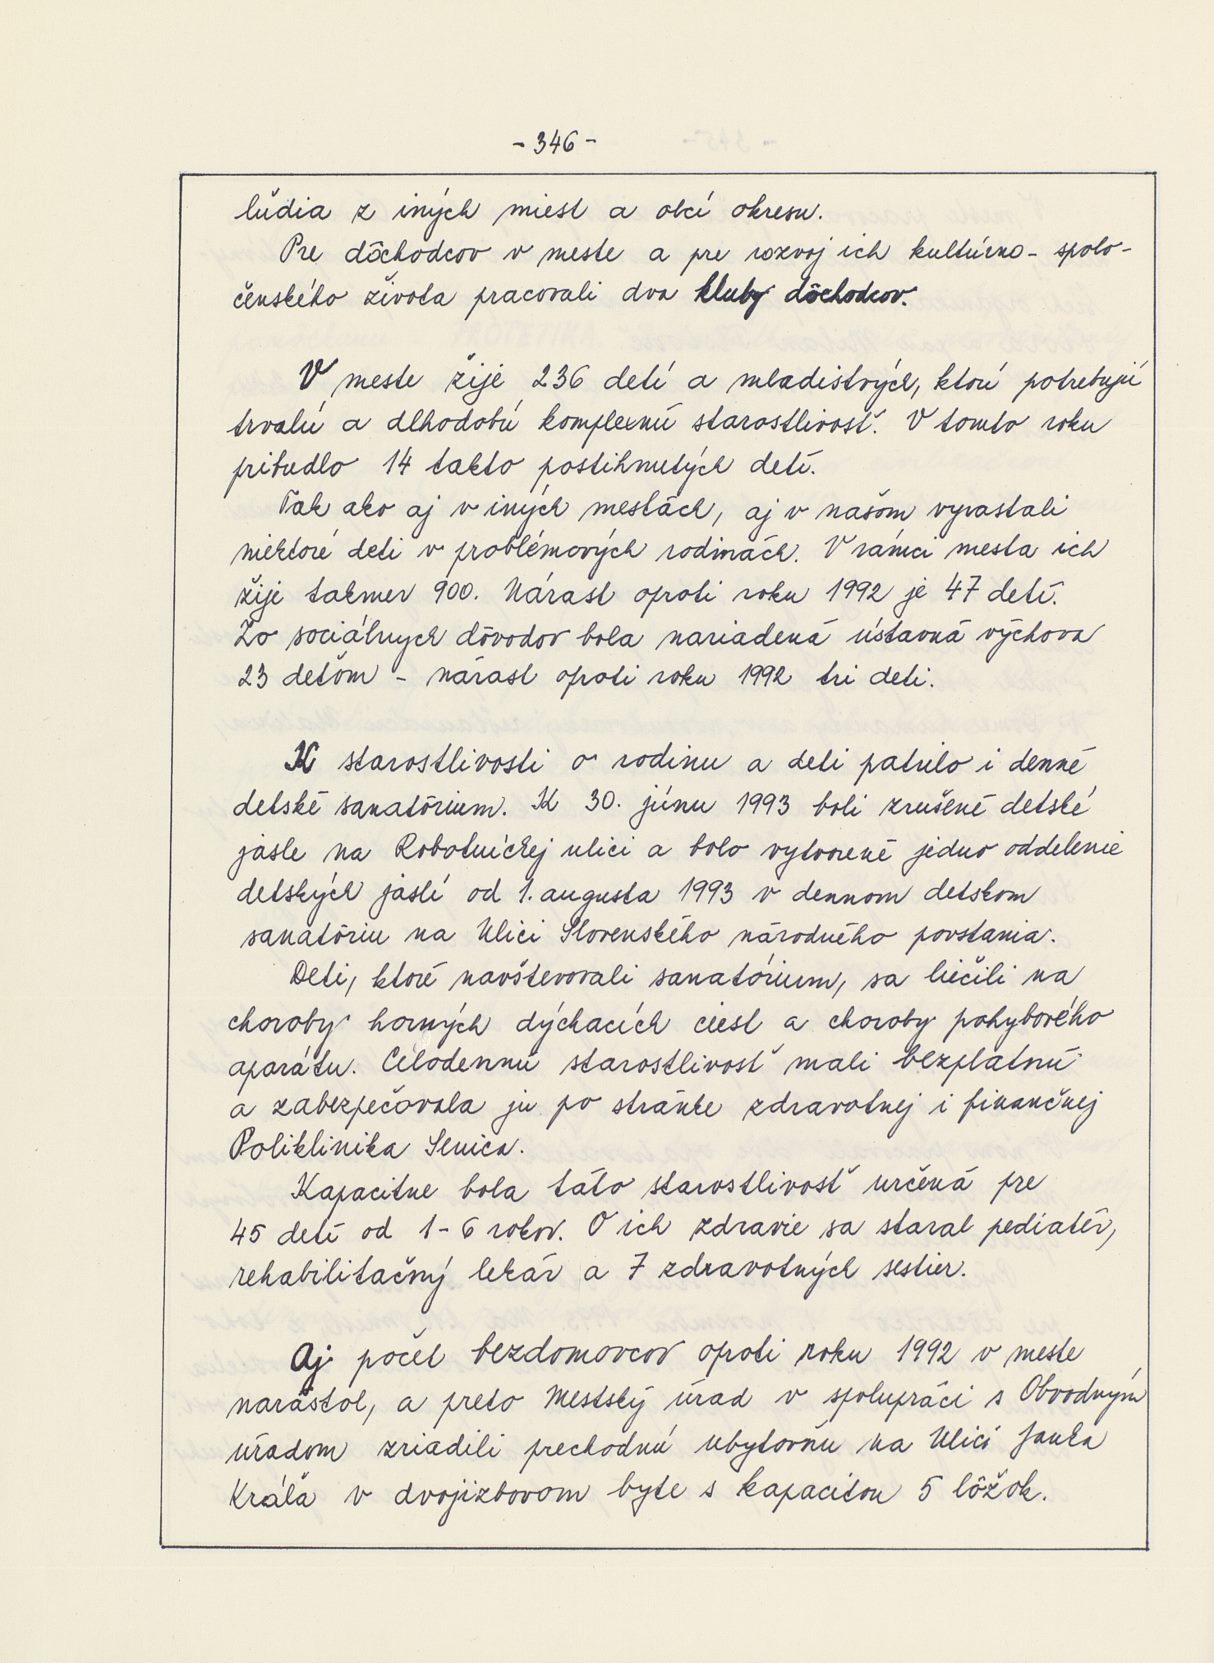 - 346 -
ľudia z iných miest a obcí okresu.
Pre dôchodcov v meste a pre rozvoj ich kultúrno- spolo-
čenského života pracovali dva kluby dôchodcov.
V meste žije 236 detí a mladistvých, ktorí potrebujú
trvalú a dlhodobú komplexnú starostlivosť. V tomto roku
pribudlo 14 takto postihnutých detí.
Tak ako aj v iných mestách, aj v našom vyrastali
niektoré deti v problémových rodinách. V rámci mesta ich
žije takmer 900. Nárast oproti roku 1992 je 47 detí.
Zo sociálnych dôvodov bola nariadená ústavná výchova
23 deťom - nárast oproti roku 1992 tri deti.
K starostlivosti o rodinu a deti patrilo i denné
detské sanatórium. K 30. júnu 1993 boli zrušené detské
jasle na Robotníckej ulici a bolo vytvorené jedno oddelenie
detských jaslí od 1. augusta 1993 v dennom detskom
sanatóriu na Ulici Slovenského národného povstania.
Deti, ktoré navštevovali sanatórium, sa liečili na
choroby horných dýchacích ciest a choroby pohybového
aparátu. Celodennú starostlivosť mali bezplatnú
a zabezpečovala ju po stránke zdravotnej i finančnej
Poliklinika Senica.
Kapacitne bola táto starostlivosť určená pre
45 detí od 1 - 6 rokov. O ich zdravie sa staral pediatér,
rehabilitačný lekár a 7 zdravotných sestier.
Aj počet bezdomovcov oproti roku 1992 v meste
narástol, a preto Mestský úrad v spolupráci s Obvodným
úradom zriadili prechodnú ubytovňu na Ulici Janka
Kráľa v dvojizbovom byte s kapacitou 5 lôžok.